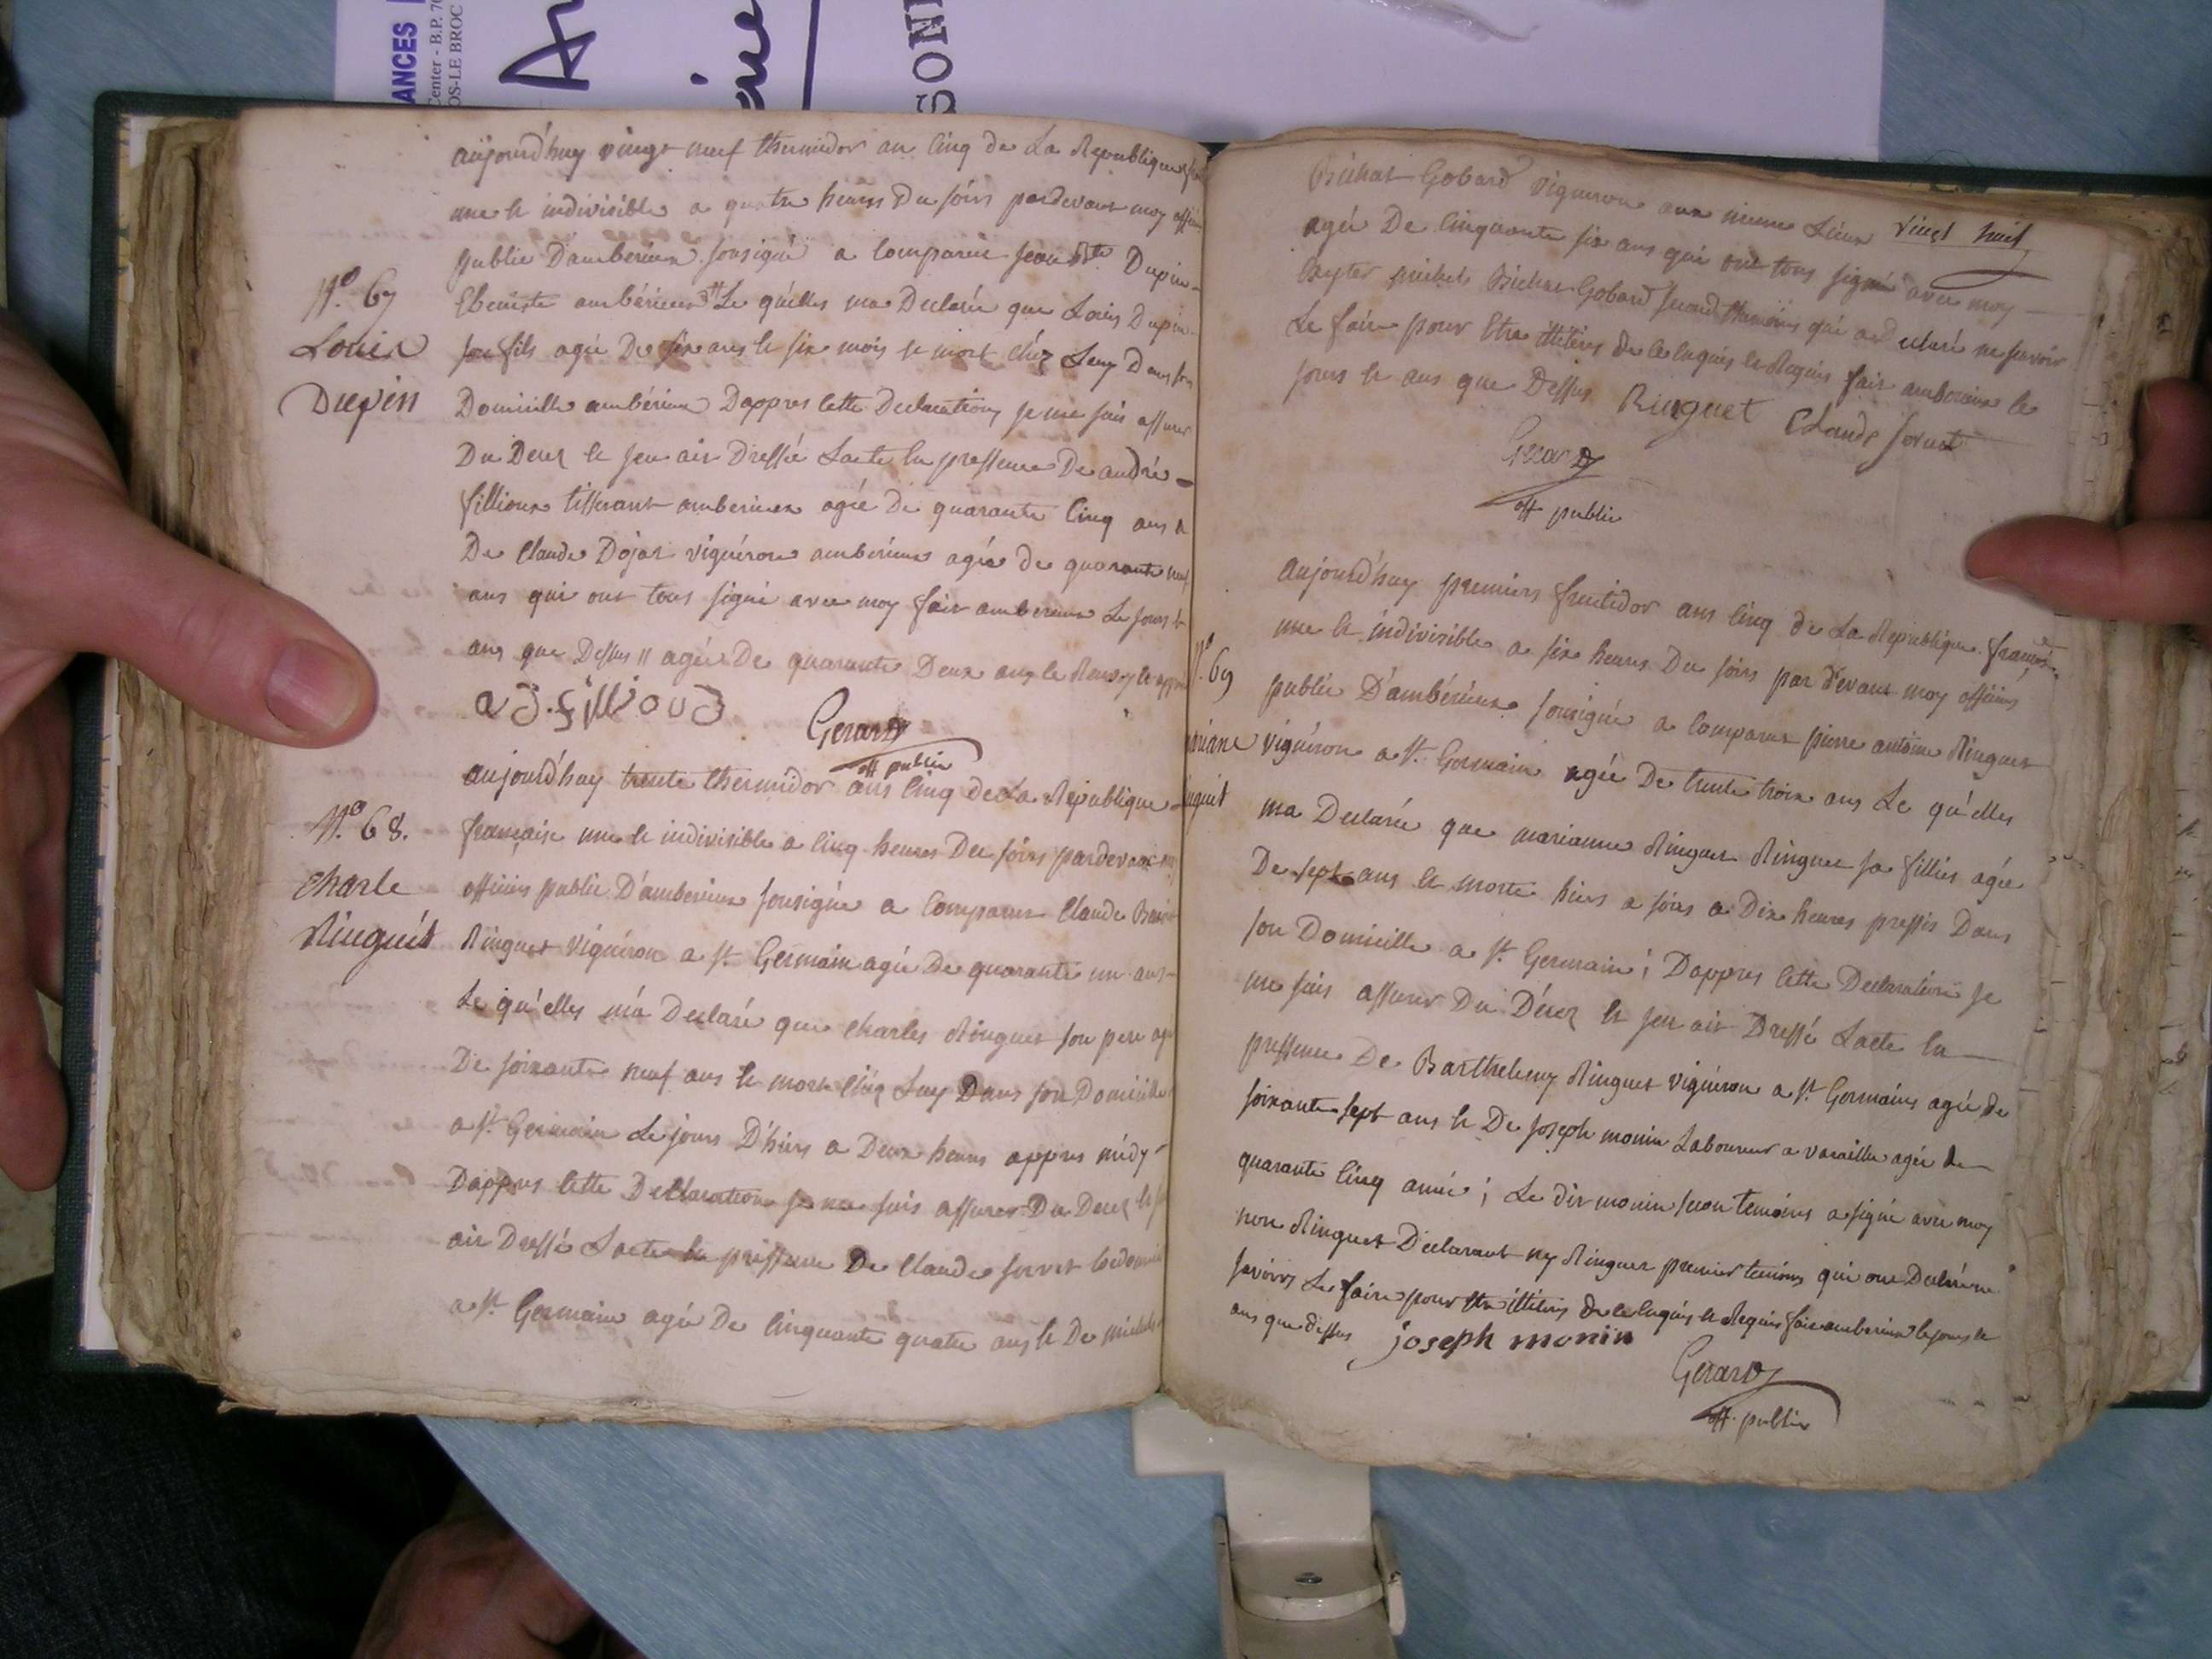 ANCES
Center - B.P. 70
OS-LE BROC
SON
aüjourd'huy vingt neuf thermidor an Cinq de La Republique
une et indivisible a quatre heures Du soirs pardevant moy officier
publie D'amberieux sousigné a Comparu jean Bte Dupin
Ebeniste ambérieux // Le qu'elles ma Declarée que Louis Dupin
son fils agée De six ans et six mois et mort chéz Luy Dans son
Domicille ambérieux Dappres Cette Declarations je me suis assurer
Du Decez et jen ait Dressée Lacte En pressence De andré
fillioux tisserant amberieux agée de quarante Cinq ans et
De Claude Dojat viguérons amberieux agée de quarante neuf
ans qui ont tous signé avec moy fait amberieux Le jours et
ans que Dessus // agée De quarante Deux ans le Renvoy et
N.o 67
Louis
Dupin
a d. fillioud
Gerard
off public
aujourd'huy trente thermidor ans Cinq de La Republique
française une et indivisible a Cinq heures Du soirs pardevant
officiers publie D'amberieux sousignée a Comparut Claude
Ringuet viguéron a St Germain agée De quarante un ans
Le qu'elles m'a Declaré que Charles Ringuet son pere agée
De soixante neuf ans et mort chéz Luy Dans son Domicille
a St Germain Le jours D'hiers a Deux heures appres midy
Dappres Cette Declaration je me suis assurer Du Decez et
ait Dressée Lacte En pressence De Claude sorret Cordonnie
a St Germain agée De Cinquante quatre ans et De michel
N.o 68.
Charle
Ringuét
vingt huit
Bichat Gobard vigneron aux meme Lieux
agée De Cinquante six ans qui ont tous signé avec moy
Exepter michel Bichat Gobard second themoins qui a declaré ne savoir
Le faire pour Etre illitéres de Ce Enquis et Requis fait amberieux les
jours et ans que Dessus
Ringuet Claude sorret
Gerard
off public
aujourd'huy premiers fructidor ans Cinq de La Republique française
une et indivisible a six heures Du soirs par devant moy officiers
publie D'ambérieux sousignée a Comparut pierre antoine Ringuet
viguéron a St Germain agée De trente trois ans Le qu'elles
ma Declarée que marianne Ringuet Ringuet sa fillies agée
De sept ans et morte hiers a soirs a Dix heures pressis Dans
son Domicille a St Germain ; Dappres Cette Declaration je
me suis assurer Du Décez et jen ait Dressé Lacte En
pressence De Barthelemy Ringuet viguéron a St Germains agée de
soixante sept ans et De joseph monin Laboureur a varaille agée de
quarante Cinq année ; Le dit monin secon temoins a signé avec moy
non Ringuet Declarant ny Ringuet premier temoins qui ont Declaré ne
savoirs Le faire pour Etre illitéres de Ce Enquis et Requis fait amberieux le jours et
ans que dessus
N.o 69
mariane
Ringuét
joseph monin
Gerard
off. public